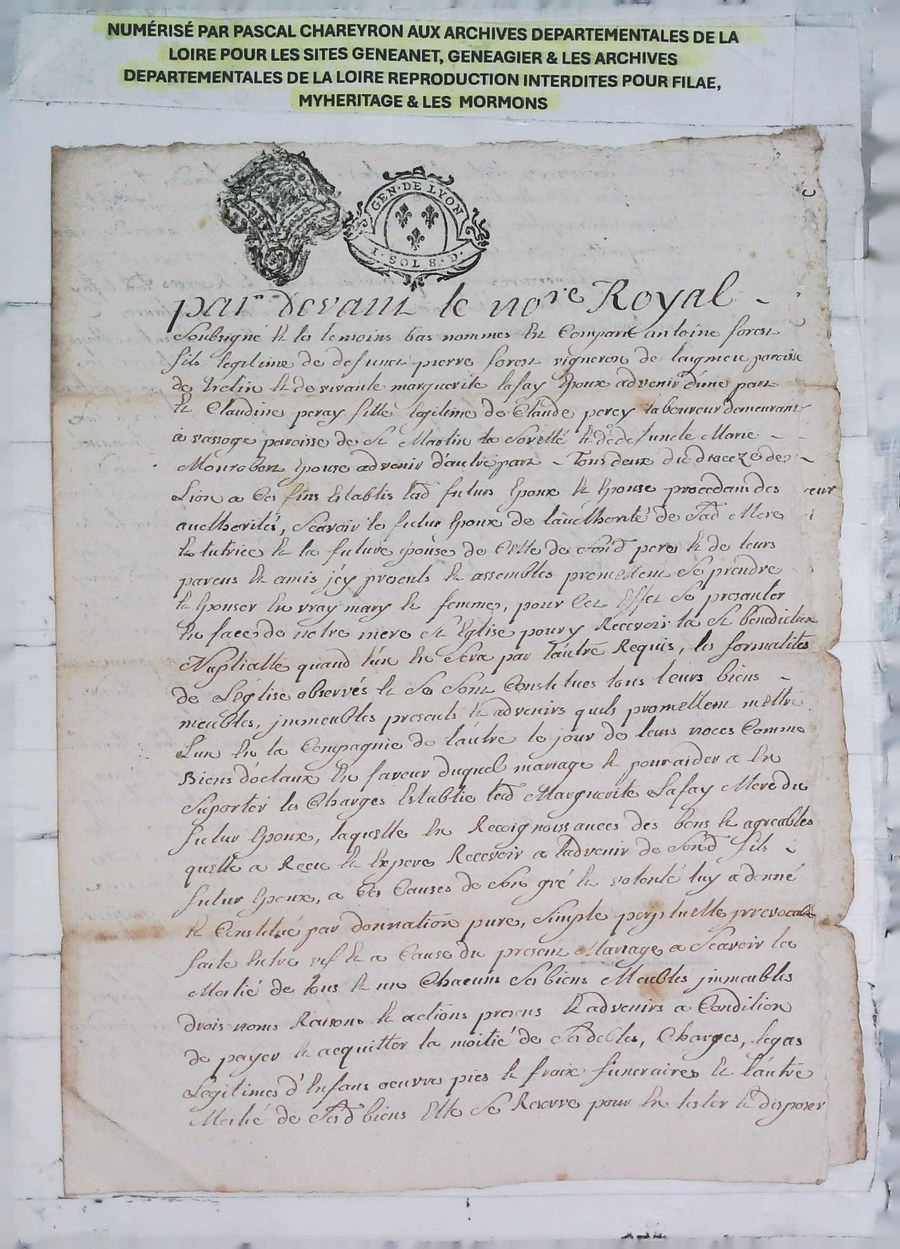 NUMÉRISÉ PAR PASCAL CHAREYRON AUX ARCHIVES DEPARTEMENTALES DE LA
LOIRE POUR LES SITES GENEANET, GENEAGIER & LES ARCHIVES
DEPARTEMENTALES DE LA LOIRE REPRODUCTION INTERDITES POUR FILAE,
MYHERITAGE & LES MORMONS
GEN·DE LYON
1·SOL 8·D·
par devant le nore Royal
Soubsigné & les temoins bas nommes En Compart antoine forest
fils legitime de defunct pierre forest vigneron de paroisse
de trelin & de vivante marguerite lafay Epoux advenir d'une part
Et Claudine peray fille legitime de Claude perey laboureur demeurant
a vassoge paroisse de St Martin la Sovetté & de defuncte Marie
Monrobert Epouse advenir d'autre part Tous deux du dioceze de
Lion a Ces fins Establis led futurs Epoux & Epouse procedans des
authorités, Scavoir le futur Epoux de l'authorité de Sad Mere
& tutrice & la future épouse de Celle de Sond pere & de leurs
parens & amis jcy presents & assembles promettent Se prendre
& Epouser En vray mary & femme, pour Cet Effet Se presanter
En face de notre mere Ste Eglise pour y Recevoir la St benediction
Nuptialle quand l'un En Sera par l'autre Requis, les formalités
de L'église observés & Se Sont Constitues tous leurs biens
meubles, jmmeubles presents & advenirs quils promettent mettre
L'un En la Compagnie de l'autre le jour de leurs noces Comme
Biens dotaux En faveur duquel mariage & pour aider a En
Suporter les Charges Establie lad Marguerite Lafay Mere du
futur Epoux, laquelle En Recoignoissances des bons & agreables
quelle a Receu & Expere Recevoir a l'advenir de Sond fils
futur Epoux, a Ces Causes de Son gré & volonté luy a donné
& Constitué par donnation pure, Simple perptuelle jrrevocable
faite Entre vif & a Cause du present Mariage a Scavoir la
Moitié de tous & un Chacuns Ses biens Meubles jmmeubles
drois noms Raisons & actions presens & advenirs a Condition
de payer & acquitter la moitié de Charges, legas
Legitimes d'Enfans oeuvres pies & fraix funeraires & l'autre
Moitié de Sesd biens Elle Se Reserve pour En tester & disposer